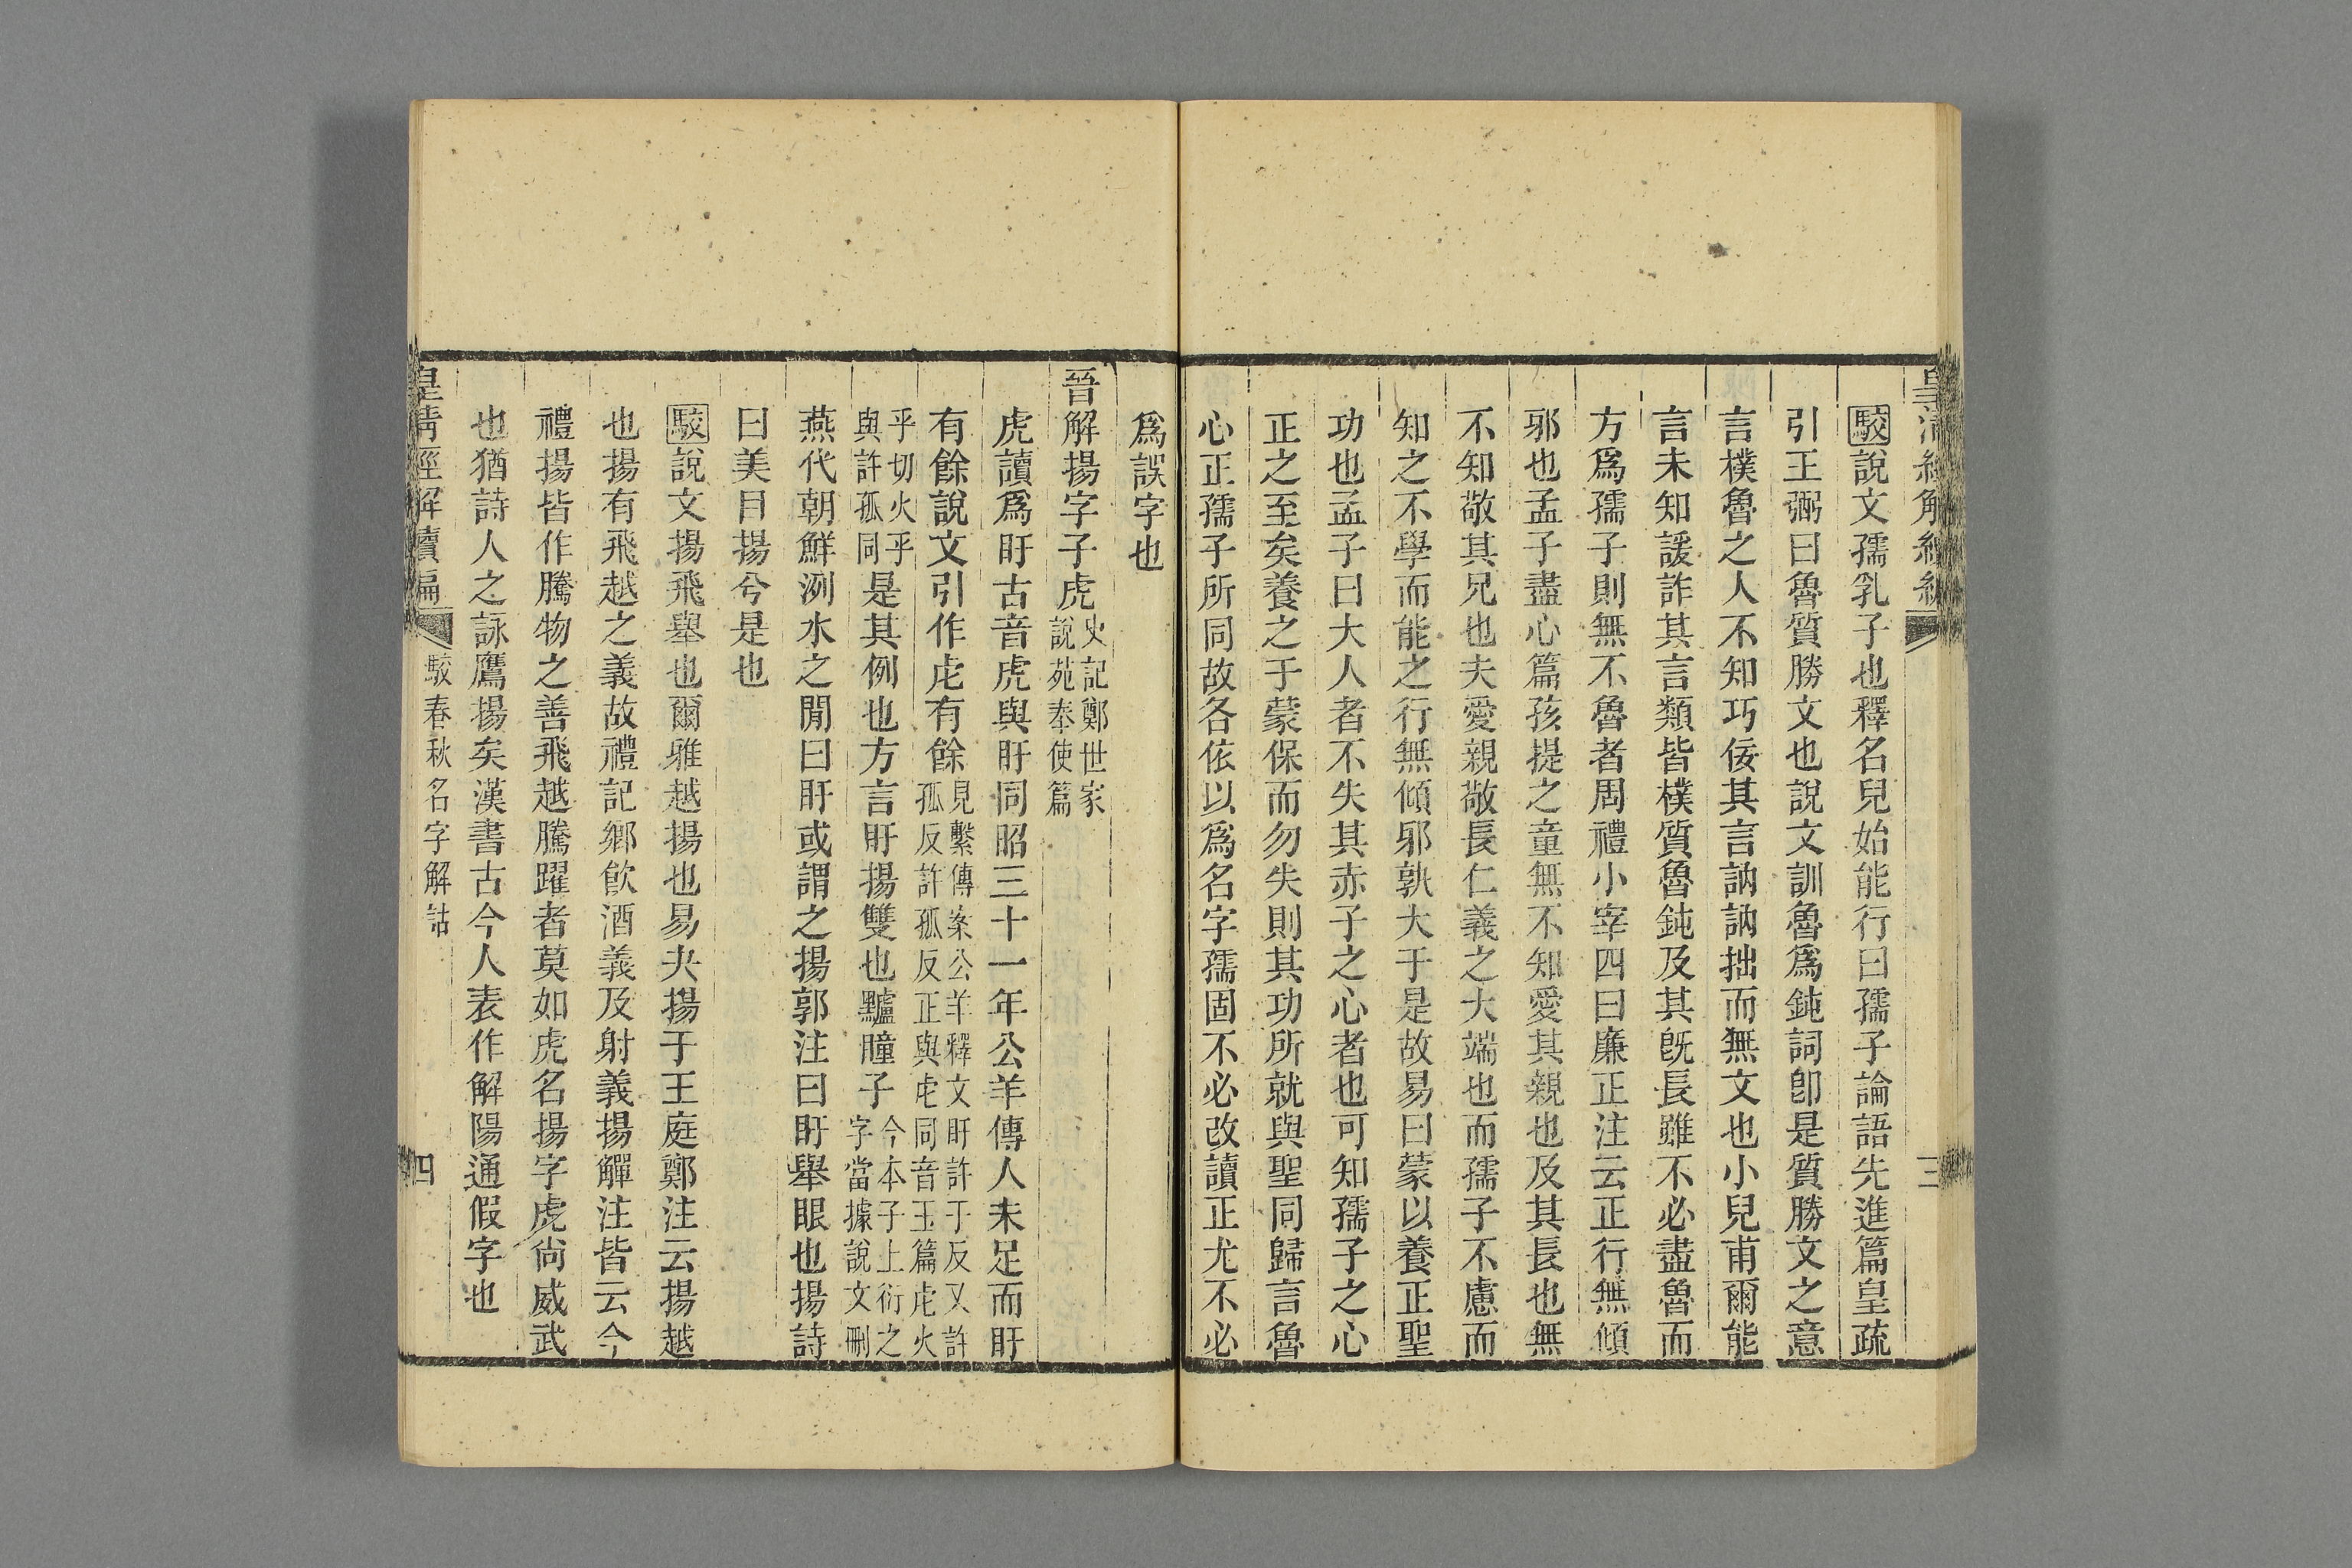 駮說文孺乳子也釋名兒始能行曰孺子論語先進篇皇疏
引王弼曰魯質勝文也說文訓魯爲鈍詞卽是質勝文之意
言樸魯之人不知巧佞其言訥訥拙而無文也小兒甫爾能
言未知諼詐其言類皆樸質魯鈍及其旣長雖不必盡魯而
方爲孺子則無不魯者周禮小宰四曰廉正注云正行無傾
邪也孟子盡心篇孩提之童無不知愛其親也及其長也無
不知敬其兄也夫愛親敬長仁義之大端也而孺子不慮而
知之不學而能之行無傾邪孰大于是故易曰蒙以養正聖
功也孟子曰大人者不失其赤子之心者也可知孺子之心
正之至矣養之于蒙保而勿失則其功所就與聖同歸言魯
心正孺子所同故各依以爲名字孺固不必改讀正尤不必
三
爲誤字也
晉解揚字子虎史記鄭世家說苑奉使篇
虎讀爲盱古音虎與盱同昭三十一年公羊傳人未足而盱
有餘說文引作虍有餘見繫傳案公羊釋文盱許于反又許孤反許孤反正與虍同音玉篇虍火
乎切火乎與許孤同是其例也方言盱揚雙也驢瞳子今本子上衍之字當據說文刪
燕代朝鮮洌水之閒曰盱或謂之揚郭注曰盱舉眼也揚詩
曰美目揚兮是也
駮說文揚飛舉也爾雅越揚也易夬揚于王庭鄭注云揚越
也揚有飛越之義故禮記鄉飮酒義及射義揚觶注皆云今
禮揚皆作騰物之善飛越騰躍者莫如虎名揚字虎尙威武
也猶詩人之詠鷹揚矣漢書古今人表作解陽通假字也
皇淸經解續編 駮春秋名字解詁 四